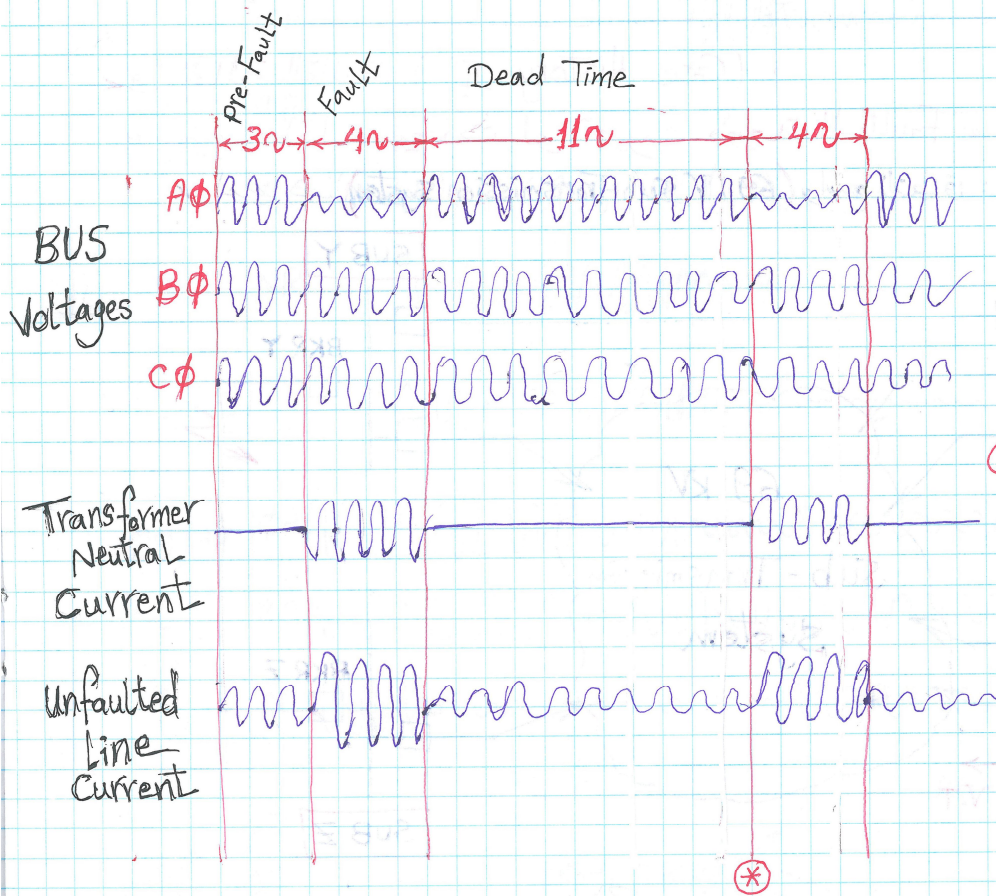 Pre-Fault
Fault
Dead Time
3~
4~
11~
4~
AΦ
BUS
Voltages
BΦ
CΦ
Transformer
Neutral
Current
Unfaulted
Line
Current
*